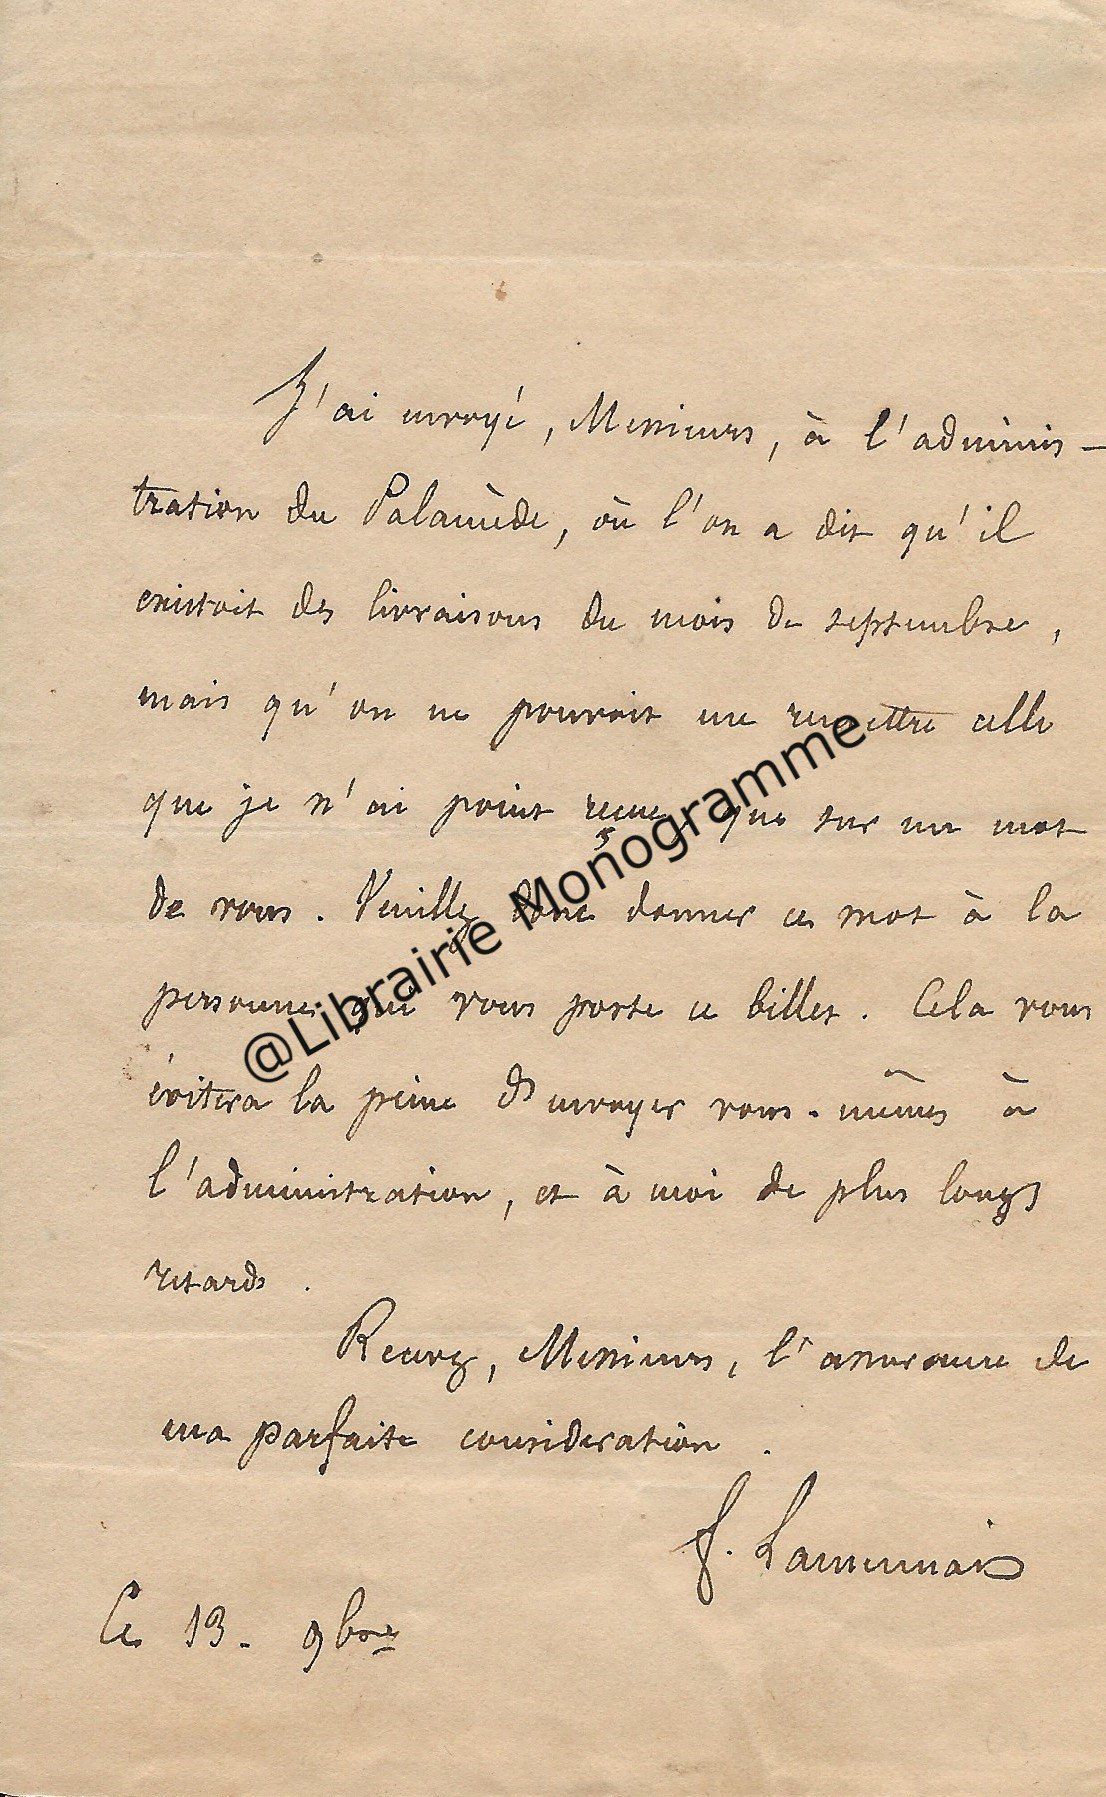 J'ai envoyé, Messieurs, à l'adminis-
tration du Palamède, où l'on a dit qu'il
existoit des livraisons du mois de septembre,
mais qu'on ne pouvoit me remettre celle
que je n'ai point reçue, que sur un mot
de vous. Veuillez donc donner ce mot à la
personne qui vous porte ce billet. Cela vous
évitera la peine d'envoyer vous-mêmes à
l'administration, et à moi de plus longs
retards.
Recevez, Messieurs, l'assurance de
ma parfaite considération.
F. Lamennais
Ce 13. 9bre
@Librairie Monogramme